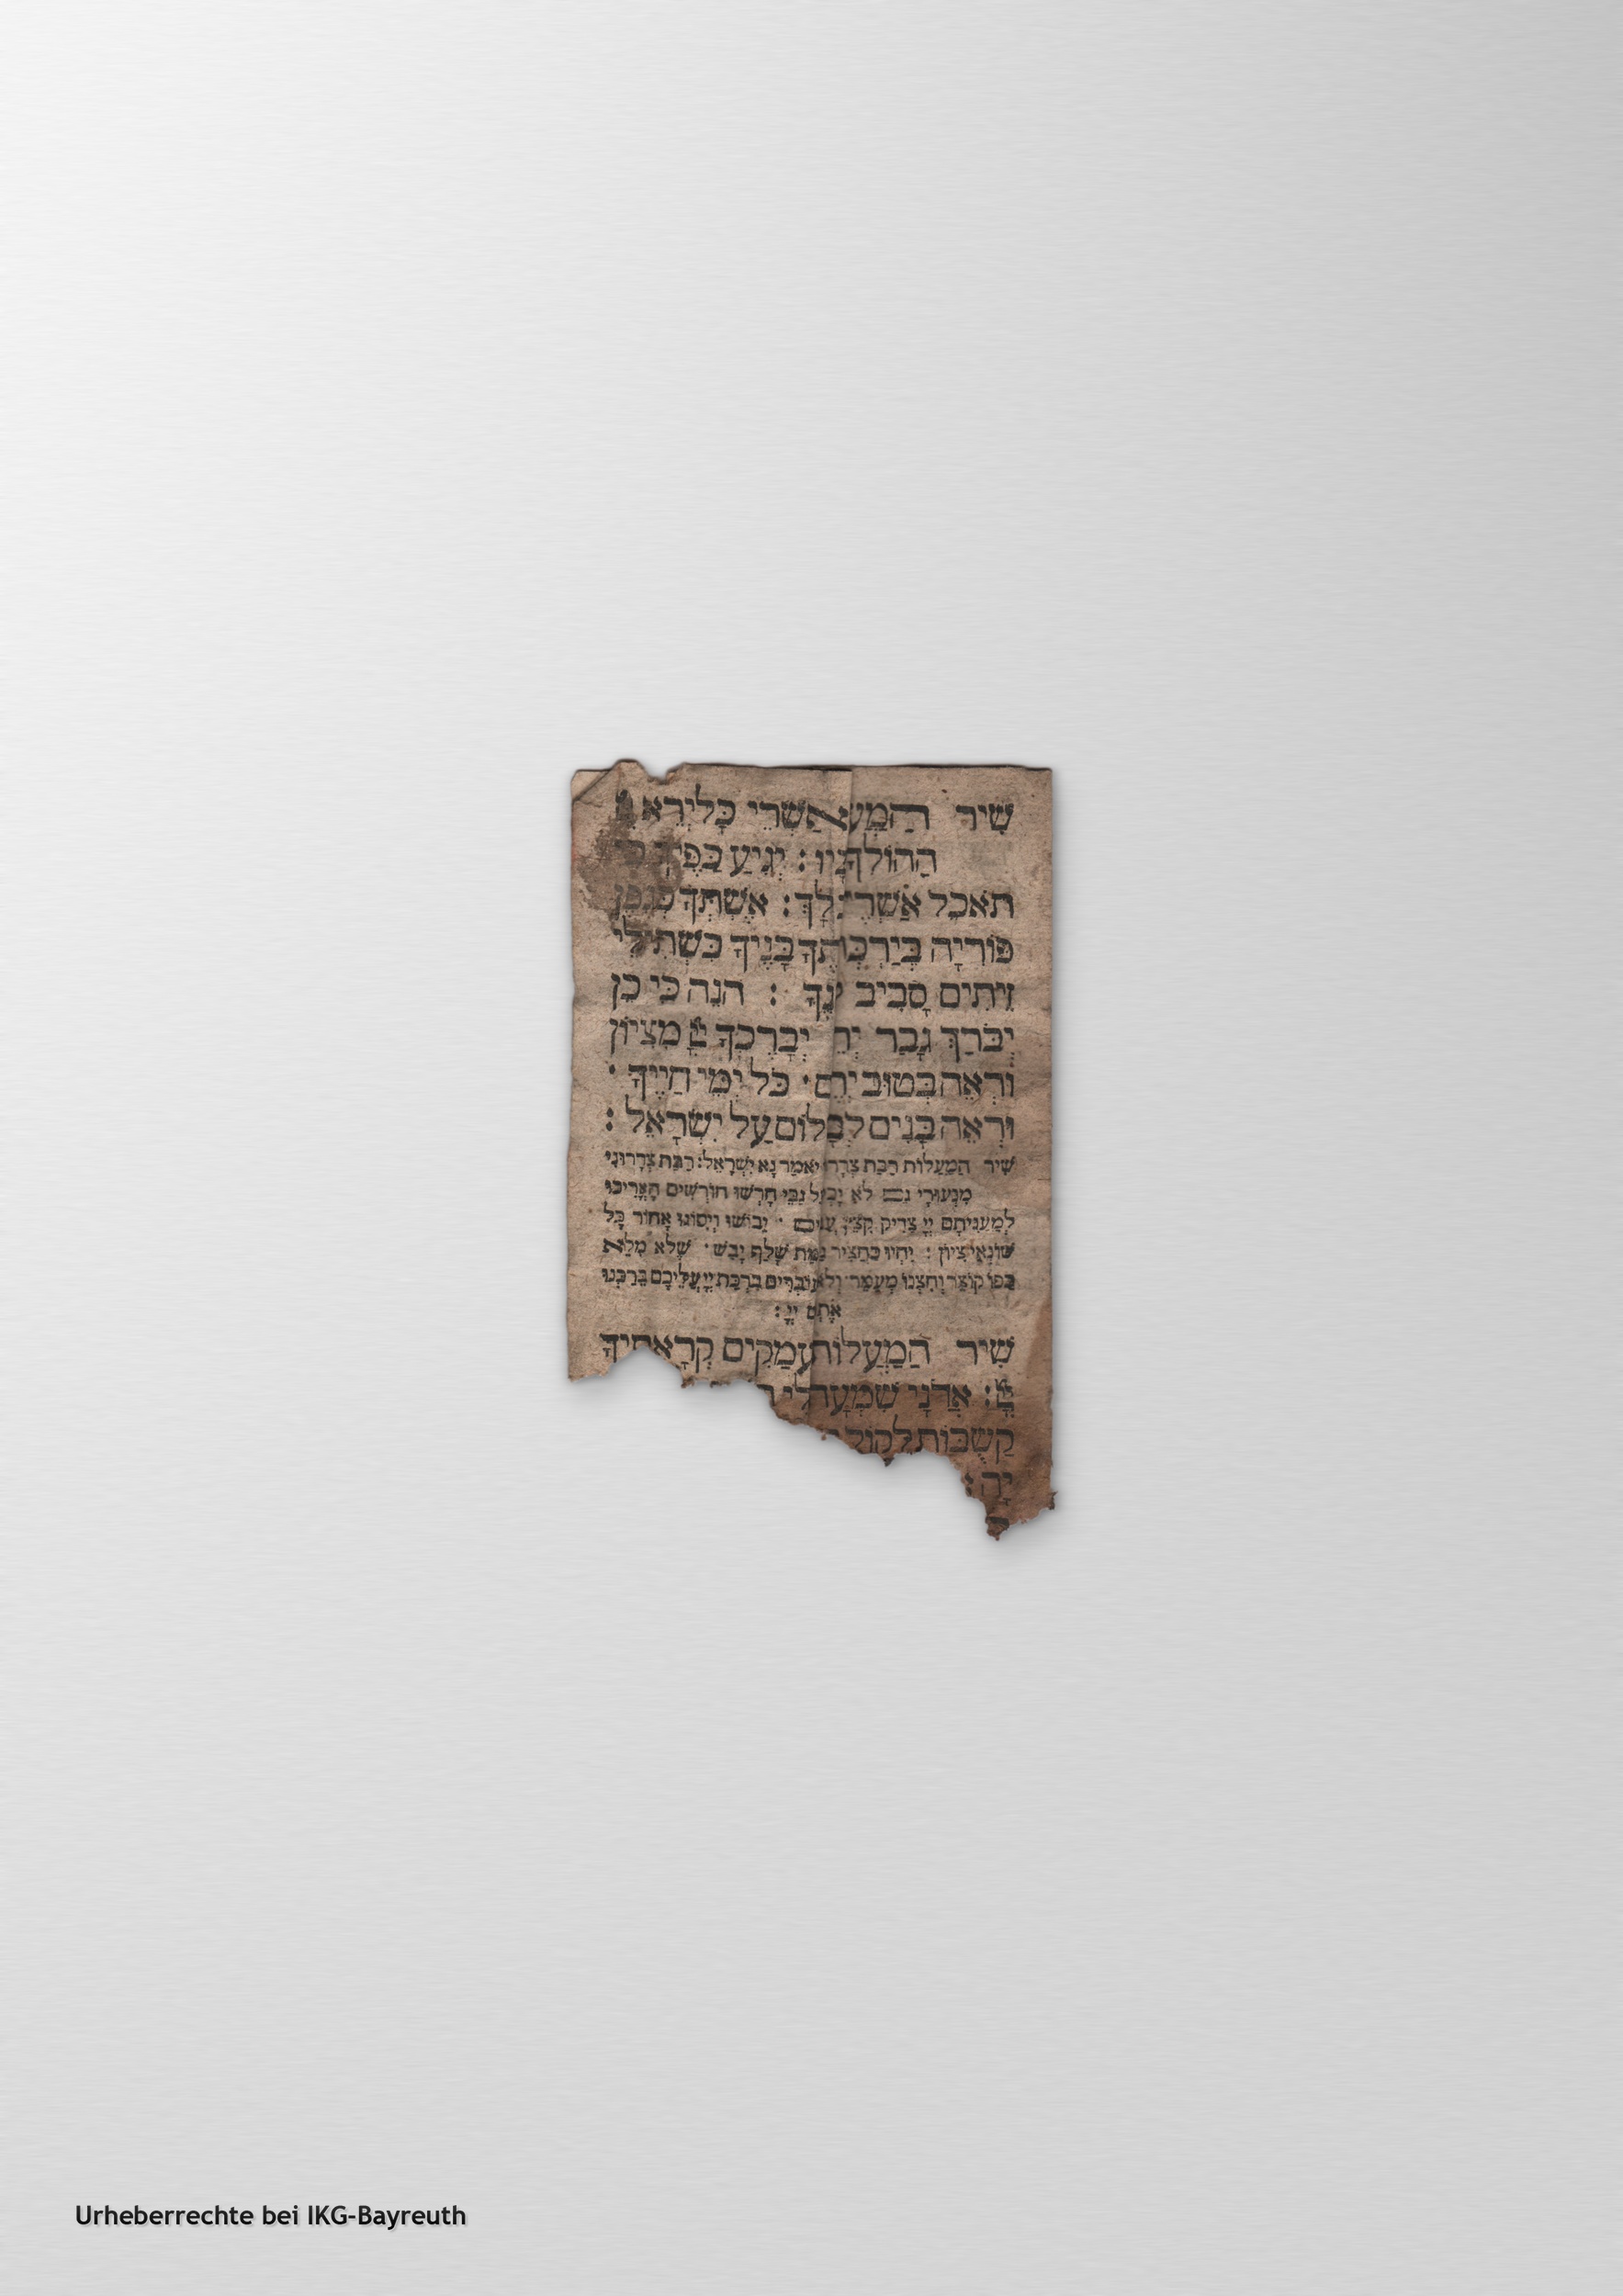 שִׁיר הַמַּעֲ אַשְׁרֵי כָּל יְרֵא
הַהוֹלֵךְ יְגִיעַ כַּפֶּיךָ כִּי
תֹאכֵל אַשְׁרֶ לָךְ : אֶשְׁתְּךָ כְּגֶפֶן
פּוֹרִיָה בְּיַרְכְּ תֶךָ בָּנֶיךָ כִּשְׁתִילֵי
זֵיתִים סָבִיב נֶךָ : הִנֵה כִּי כֵן
יְבֹרַךְ גָבֶר יְרֵ יְבָרֶכְךָ יְיָ מִצִיוֹן
וּרְאֵה בְּטוּב יְרֵ ם · כֹּל יְמֵי חַיֶיךָ ·
וּרְאֵה בָּנִים לְבָ לוֹם עַל יִשְׂרָאֵל :
שִׁיר הַמַעֲלוֹת רַבַּת צְרָרוּ יֹאמַר נָא יִשְׂרָאֵל : רַבַּת צְרָרוּנִי
מִנְעוּרַי גם לֹא יָכְ לִ גַבִּי חָרְשׁוּ חוֹרְשִׁים הֶאֱרִיכוּ
לְמַעֲנִיתָם יְיָ צַדִיק קִצֵץ עים · יֵבוֹשׁוּ וְיִסוֹגוּ אָחוֹר כָּל
שׂוֹנְאֵי צִיוֹן : יִהְיוּ כַּחֲצִיר מַת שָׁלַף יָבֵשׁ · שֶׁלֹא מִלֵא
כַּפּוֹ קוֹצֵר וְחִצְנוֹ מְעַמֵר וְלֹא עוֹבְרִים בִּרְכַּת יְיָ עֲלֵיכֶם בֵּרַכְנוּ
אֶתְכֶם יְיָ :
שִׁיר הַמַעֲלוֹת מַעֲמַקִים קְרָאתִיךָ
יְיָ : אֲדֹנָי שִׁמְעָה
קַשֻׁבוֹת לְקוֹל
יָהּ :
Urheberrechte bei IKG-Bayreuth